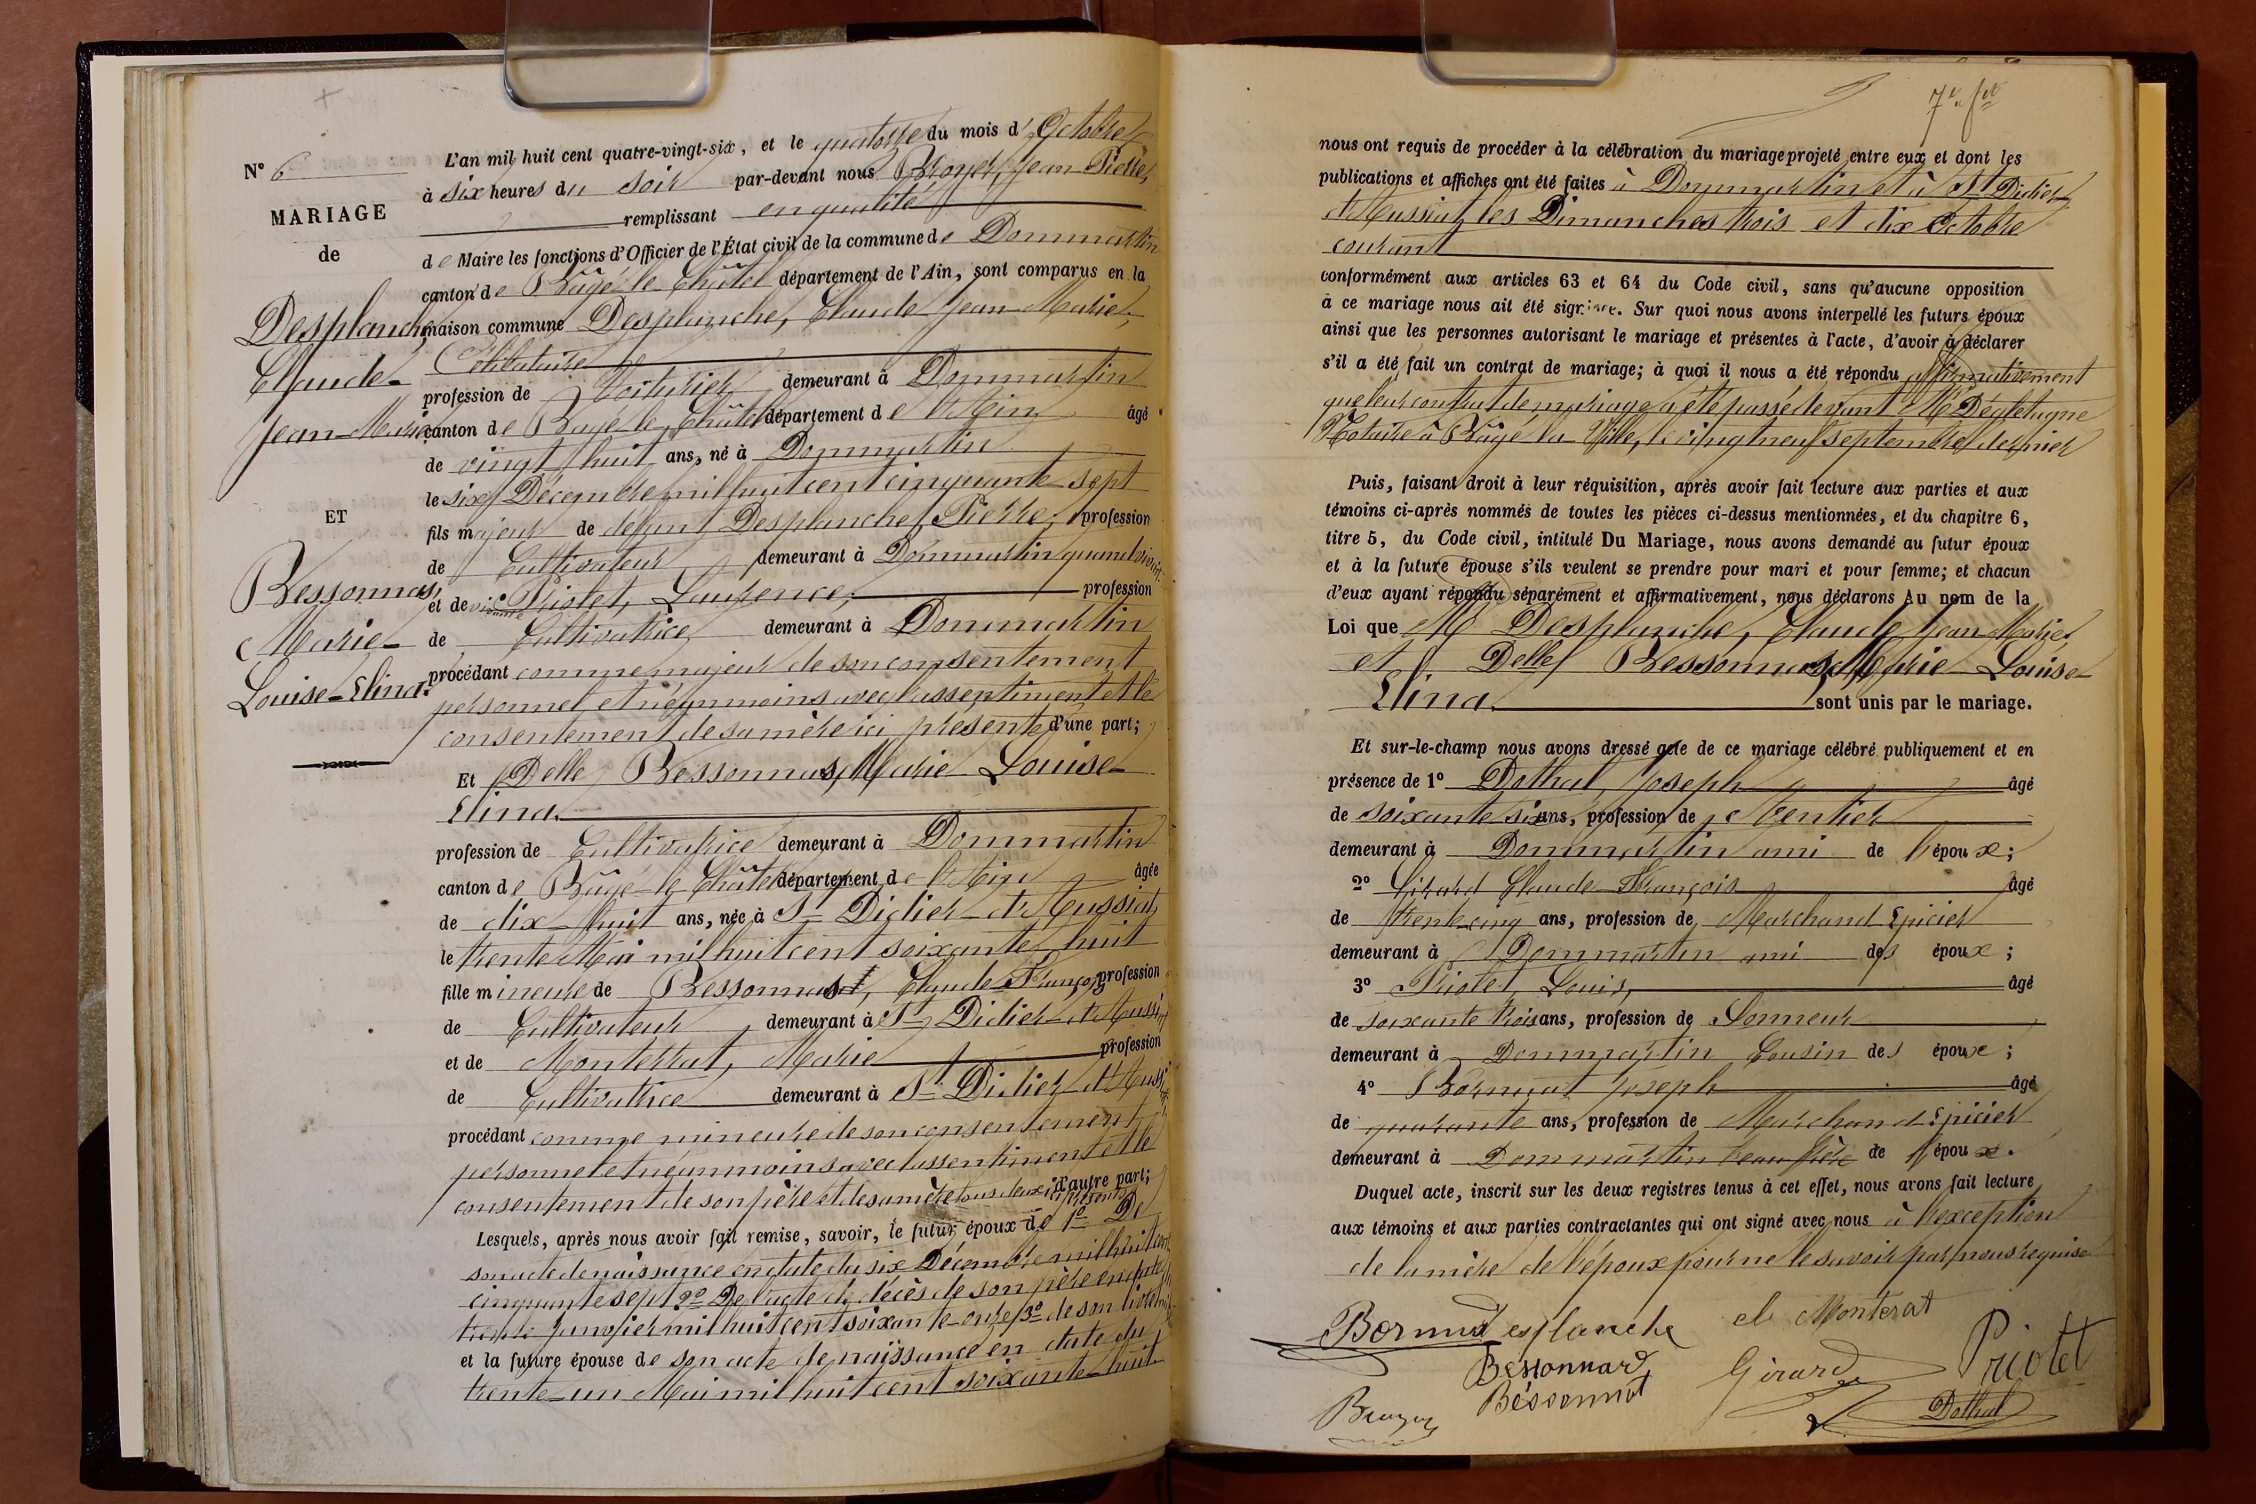 N° 6
MARIAGE
de
Desplanche,
Claude-
Jean-Marie
ET
Bessonnas,
Marie-
Louise-Elina.
L'an mil huit cent quatre-vingt-six, et le quatorze du mois d'Octobre
à six heures du soir par-devant nous Broyer, Jean Pierre,
remplissant en qualité
de Maire les fonctions d'Officier de l'État civil de la commune de Dommartin
canton de Bâgé-le-Châtel département de l'Ain, sont comparus en la
maison commune Desplanche, Claude Jean-Marie,
Célibataire
profession de Voiturier demeurant à Dommartin
canton de Bâgé-le-Châtel département de l'Ain âgé
de vingt huit ans, né à Dommartin
le six Décembre mil huit cent cinquante sept
fils majeur de défunt Desplanche, Pierre, profession
de Cultivateur demeurant à Dommartin quand vivait
et de vivante Priolet, Laurence, profession
de Cultivatrice demeurant à Dommartin
procédant comme majeur de son consentement
personnel et néanmoins avec l'assentiment et le
consentement de sa mère ici présente d'une part;
Et Delle Bessonnas, Marie-Louise-
Elina.
profession de Cultivatrice demeurant à Dommartin
canton de Bâgé-le-Châtel département de l'Ain âgée
de dix-huit ans, née à St Didier-d'Aussiat
le trente Mai mil huit cent soixante huit
fille mineure de Bessonnas, Claude-François profession
de Cultivateur demeurant à St Didier-d'Aussiat
et de Monterrat, Marie profession
de Cultivatrice demeurant à St Didier-d'Aussiat
procédant comme mineure de son consentement
personnel et néanmoins avec l'assentiment et le
consentement de son père et de sa mère tous deux ici présents d'autre part;
Lesquels, après nous avoir fait remise, savoir, le futur époux de 1° De
son acte de naissance en date du six Décembre mil huit cent
cinquante sept 2° De l'acte de décès de son père en date
trente Janvier mil huit cent soixante-onze 3° de son livret
et la future épouse de son acte de naissance en date du
trente-un Mai mil huit cent soixante-huit
7e fet
nous ont requis de procéder à la célébration du mariage projeté entre eux et dont les
publications et affiches ont été faites à Dommartin et à St Didier
d'Aussiat, les Dimanches trois et dix Octobre
courant
conformément aux articles 63 et 64 du Code civil, sans qu'aucune opposition
à ce mariage nous ait été signifiée. Sur quoi nous avons interpellé les futurs époux
ainsi que les personnes autorisant le mariage et présentes à l'acte, d'avoir à déclarer
s'il a été fait un contrat de mariage; à quoi il nous a été répondu affirmativement
que leur contrat de mariage a été passé devant Me Degletagne
Notaire à Bâgé la Ville, le vingt neuf septembre dernier
Puis, faisant droit à leur réquisition, après avoir fait lecture aux parties et aux
témoins ci-après nommés de toutes les pièces ci-dessus mentionnées, et du chapitre 6,
titre 5, du Code civil, intitulé Du Mariage, nous avons demandé au futur époux
et à la future épouse s'ils veulent se prendre pour mari et pour femme; et chacun
d'eux ayant répondu séparément et affirmativement, nous déclarons Au nom de la
Loi que M Desplanche, Claude Jean-Marie
et Delle Bessonnas, Marie-Louise-
Elina. sont unis par le mariage.
Et sur-le-champ nous avons dressé acte de ce mariage célébré publiquement et en
présence de 1° Dothal, Joseph âgé
de soixante six ans, profession de Rentier
demeurant à Dommartin ami de l'époux;
2° Girard Claude-François âgé
de trente-cinq ans, profession de Marchand Epicier
demeurant à Dommartin ami des époux;
3° Priolet, Louis, âgé
de soixante trois ans, profession de Sonneur
demeurant à Dommartin Cousin des époux;
4° Bornuat Joseph âgé
de quarante ans, profession de Marchand Epicier
demeurant à Dommartin beau frère de l'époux.
Duquel acte, inscrit sur les deux registres tenus à cet effet, nous avons fait lecture
aux témoins et aux parties contractantes qui ont signé avec nous à l'exception
de la mère de l'époux pour ne le savoir par nous requise
Bornuat Desplanche el Monterat
Bessonnard Girard Priolet
Broyer Béssonnat Dothal